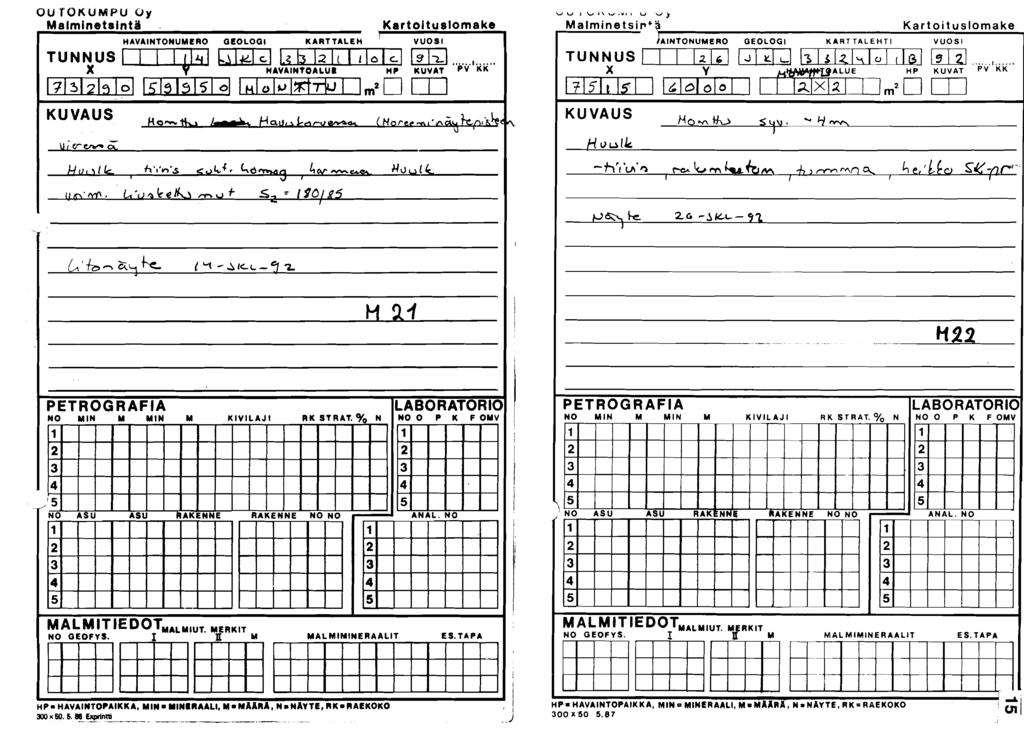 OUTOKUMPU Oy
Malminetsintä Kartoituslomake
HAVAINTONUMERO GEOLOGI KARTTALEH VUOSI
TUNNUS 14 JKL 3321 10C 92
X Y HAVAINTOALUE HP KUVAT PV KK
73290 59950 MONTTU m²
KUVAUS Monttu Haukkarovessa
vieressä
Huulk, tiivis suht. homog, harmaa Huulk
voim. liuskettunut S₂ = 180/85
Litonäyte 14-JKL-92
M 21
PETROGRAFIA LABORATORIO
NO MIN M MIN M KIVILAJI RK STRAT. % N NO O P K F OMV
1 1
2 2
3 3
4 4
5 5
NO ASU ASU RAKENNE RAKENNE NO NO ANAL. NO
1 1
2 2
3 3
4 4
5 5
MALMITIEDOT MALMIUT. MERKIT
NO GEOFYS. I II M MALMIMINERAALIT ES.TAPA
HP = HAVAINTOPAIKKA, MIN = MINERAALI, M = MÄÄRÄ, N = NÄYTE, RK = RAEKOKO
300 x 50. 5. 86 Exprintti
Malminetsintä Kartoituslomake
AINTONUMERO GEOLOGI KARTTALEHTI VUOSI
TUNNUS 26 JKL 33240 1B 92
X Y ALUE HP KUVAT PV KK
7515 6000 2X2 m²
KUVAUS Monttu syv. ~4m
Huulk
-tiivis, rakenteeton, tumma, heikko SK-pr
Näyte 26-JKL-92
M22
PETROGRAFIA LABORATORIO
NO MIN M MIN M KIVILAJI RK STRAT. % N NO O P K F OMV
1 1
2 2
3 3
4 4
5 5
NO ASU ASU RAKENNE RAKENNE NO NO ANAL. NO
1 1
2 2
3 3
4 4
5 5
MALMITIEDOT MALMIUT. MERKIT
NO GEOFYS. I II M MALMIMINERAALIT ES.TAPA
HP = HAVAINTOPAIKKA, MIN = MINERAALI, M = MÄÄRÄ, N = NÄYTE, RK = RAEKOKO
300 x 50 5.87
15